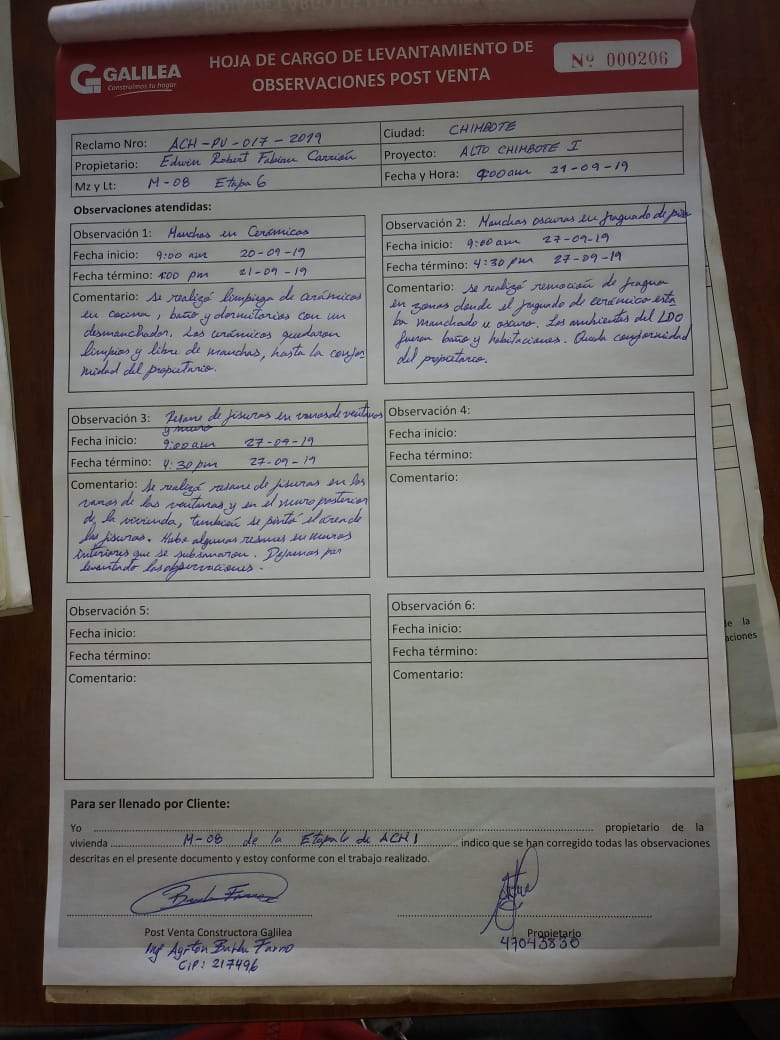 GALILEA
Construimos tu hogar
HOJA DE CARGO DE LEVANTAMIENTO DE
OBSERVACIONES POST VENTA
Nº 000206
Reclamo Nro: ACH-PV-017-2019
Propietario: Edwin Robert Fabian Carrión
Mz y Lt: M-08 Etapa 6
Ciudad: CHIMBOTE
Proyecto: ALTO CHIMBOTE I
Fecha y Hora: 9:00 am 21-09-19
Observaciones atendidas:
Observación 1: Manchas en Cerámicos
Fecha inicio: 9:00 am 20-09-19
Fecha término: 1:00 pm 21-09-19
Comentario: Se realizó limpieza de cerámicos
en cocina, baño y dormitorios con un
desmanchador. Los cerámicos quedaron
limpios y libre de manchas, hasta la confor
midad del propietario.
Observación 2: Manchas oscuras en fraguado de piso
Fecha inicio: 9:00 am 27-09-19
Fecha término: 4:30 pm 27-09-19
Comentario: Se realizó remoción de fragua
en zonas donde el fraguado de cerámico esta
ba manchado u oscuro. Los ambientes del LDO
fueron baño y habitaciones. Queda conformidad
del propietario.
Observación 3: Resane de fisuras en vanos de ventanas
y muro
Fecha inicio: 9:00 am 27-09-19
Fecha término: 4:30 pm 27-09-19
Comentario: Se realizó resane de fisuras en los
vanos de las ventanas y en el muro posterior
de la vivienda, también se pintó el área de
las fisuras. Hubo algunas resanes en muros
interiores que se subsanaron. Dejamos por
levantado las observaciones.
Observación 4:
Fecha inicio:
Fecha término:
Comentario:
Observación 5:
Fecha inicio:
Fecha término:
Comentario:
Observación 6:
Fecha inicio:
Fecha término:
Comentario:
Para ser llenado por Cliente:
Yo propietario de la
vivienda M-08 de la Etapa 6 de ACH I indico que se han corregido todas las observaciones
descritas en el presente documento y estoy conforme con el trabajo realizado.
Post Venta Constructora Galilea
Ing Ayrton
CIP: 217496
Propietario
47043830
de la
aciones